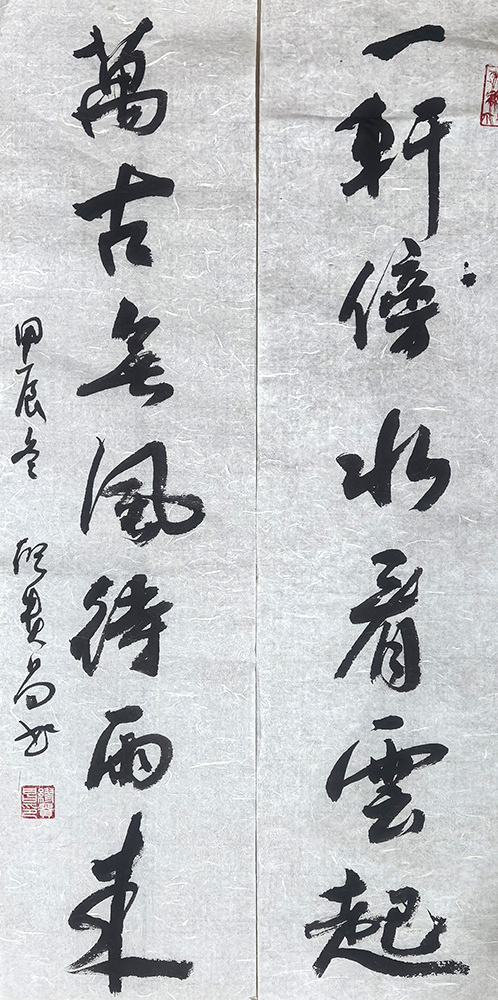 一軒傍水看雲起
萬古無風待雨來
甲辰冬